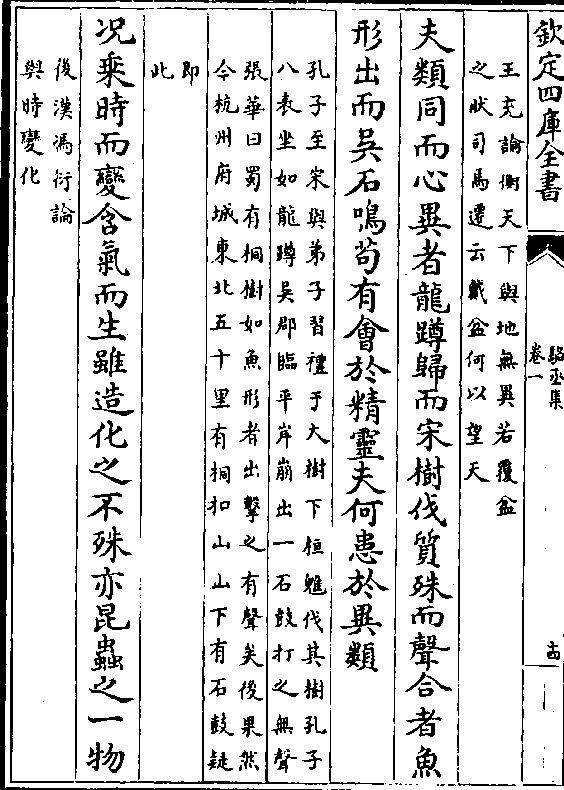 欽定四庫全書
駱丞集
卷一
十四
王充論衡天下與地無異若覆盆
之狀司馬遷云戴盆何以望天
夫類同而心異者龍蹲歸而宋樹伐質殊而聲合者魚
形出而吳石鳴苟有會於精靈夫何患於異類
孔子至宋與弟子習禮于大樹下桓魋伐其樹孔子
八表坐如龍蹲吳郡臨平岸崩出一石鼓打之無聲
張華曰蜀有桐樹如魚形者出擊之有聲矣後果然
今杭州府城東北五十里有桐扣山山下有石鼓疑
即
此
况乘時而變含氣而生雖造化之不殊亦昆蟲之一物
後漢馮衍論
與時變化